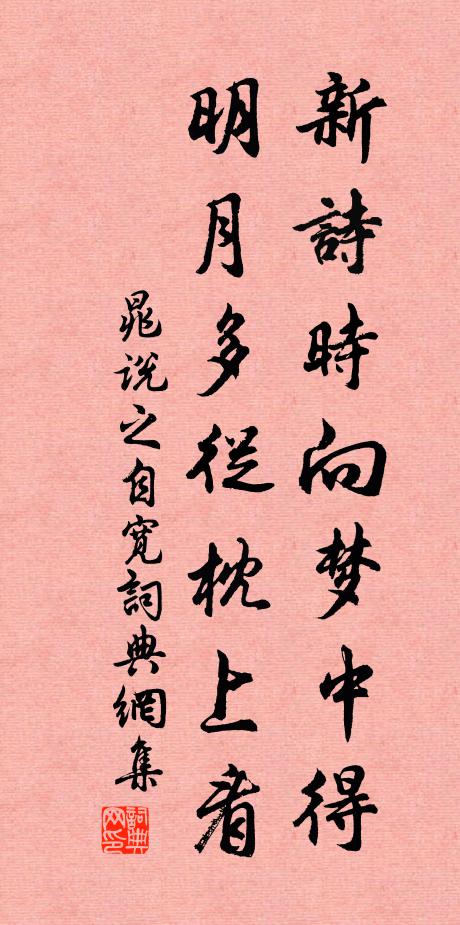 新詩時向梦中得
明月多從枕上看
晁説之自寬詞典網集
詞典
网印